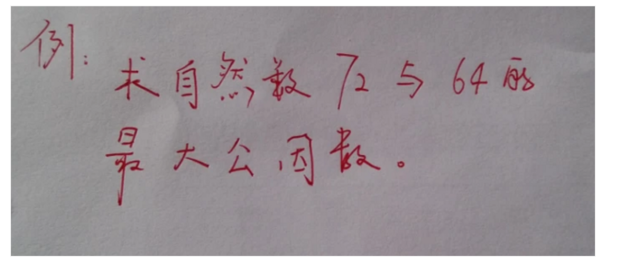 例：求自然数72与64的
最大公因数。